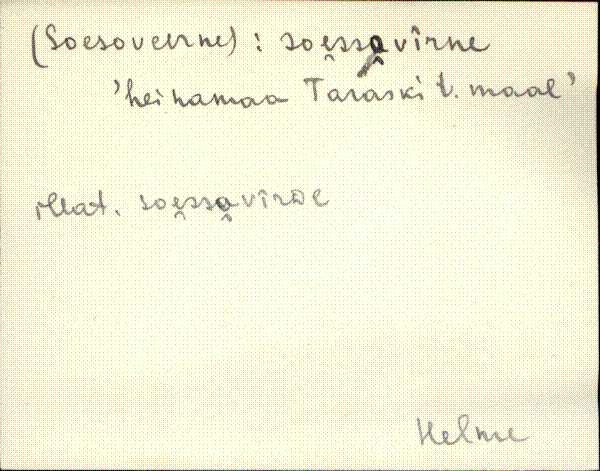 (Soesoveerne) : soe̬ssa̬vîrne
'heinamaa Taraski t. maal'
illat. soe̬ssa̬vîrde
Helme